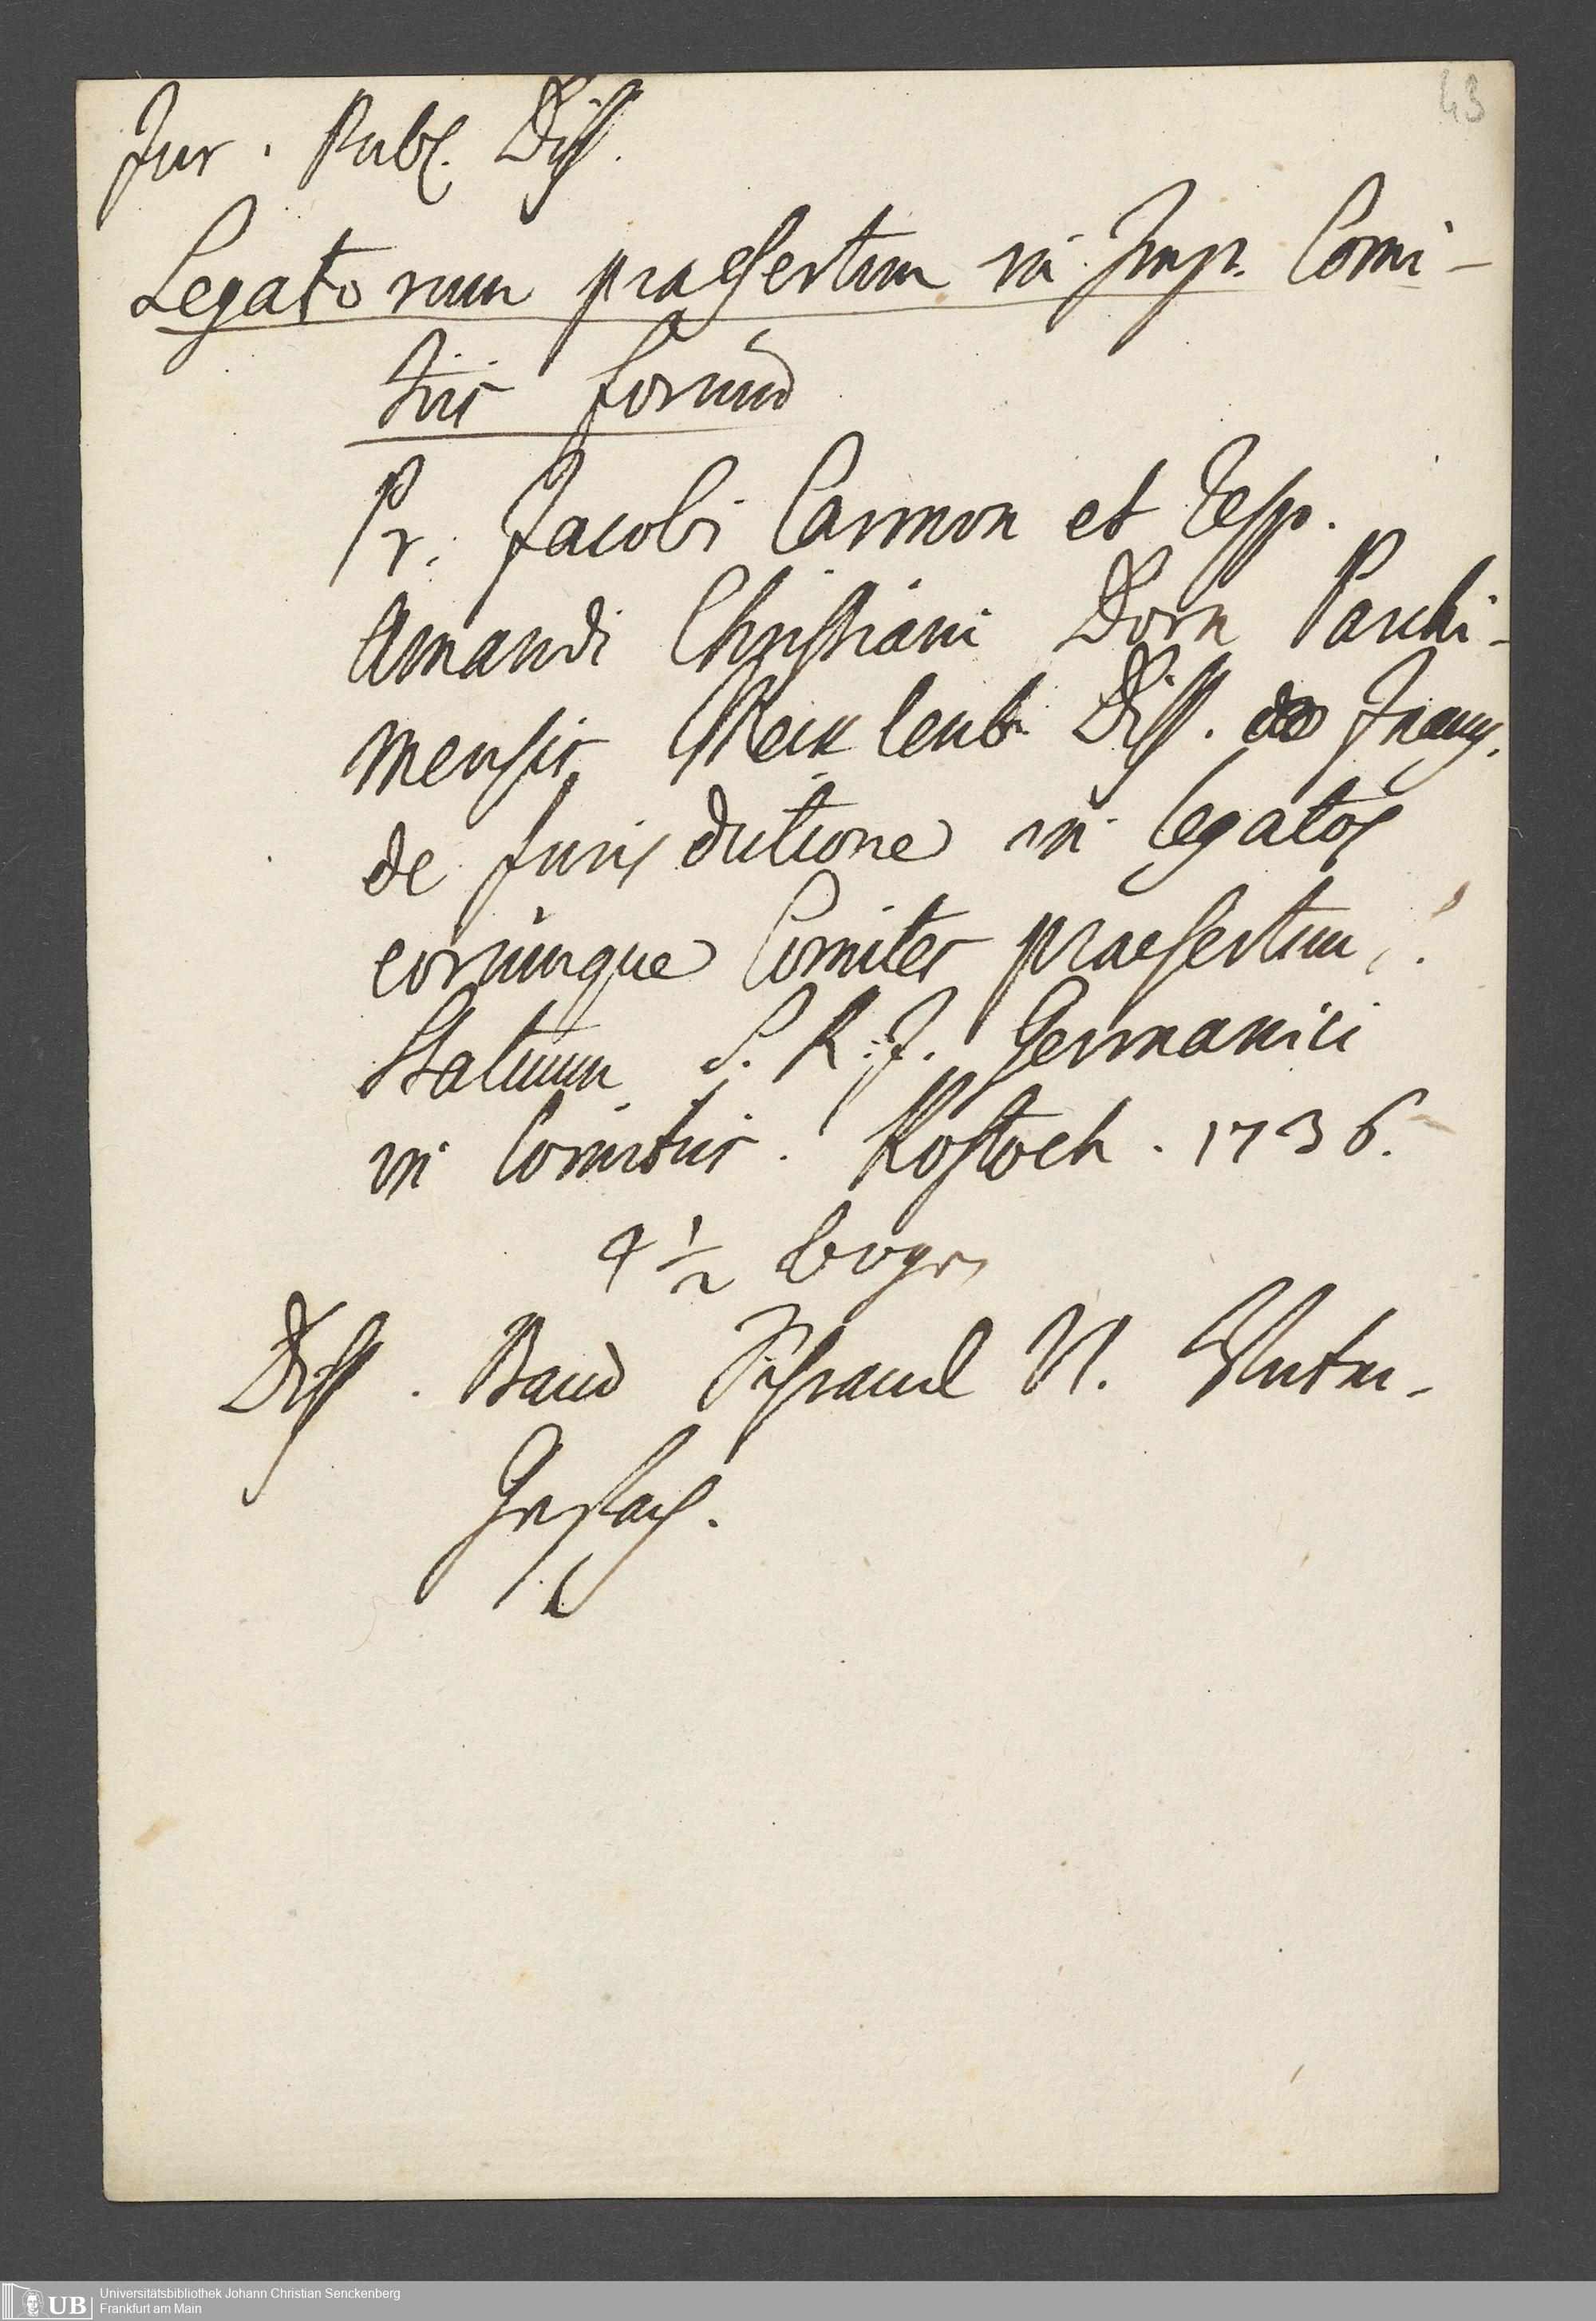 43
Jur. Publ. Diss.
Legatorum praesertim in Imp. Comi-
tiis forum
Pr. Jacobi Carmon et Resp.
Amandi Christiani Dorn Parchi-
mensis Mecklenb. Diss. Inaug.
de Jurisdictione in legatos
eorumque Comites praesertim
Statuum S. R. J. Germanici
in Comitiis. Rostoch. 1736.
4 1/2 bogen
Diss. Band
Universitätsbibliothek Johann Christian Senckenberg
Frankfurt am Main
UB